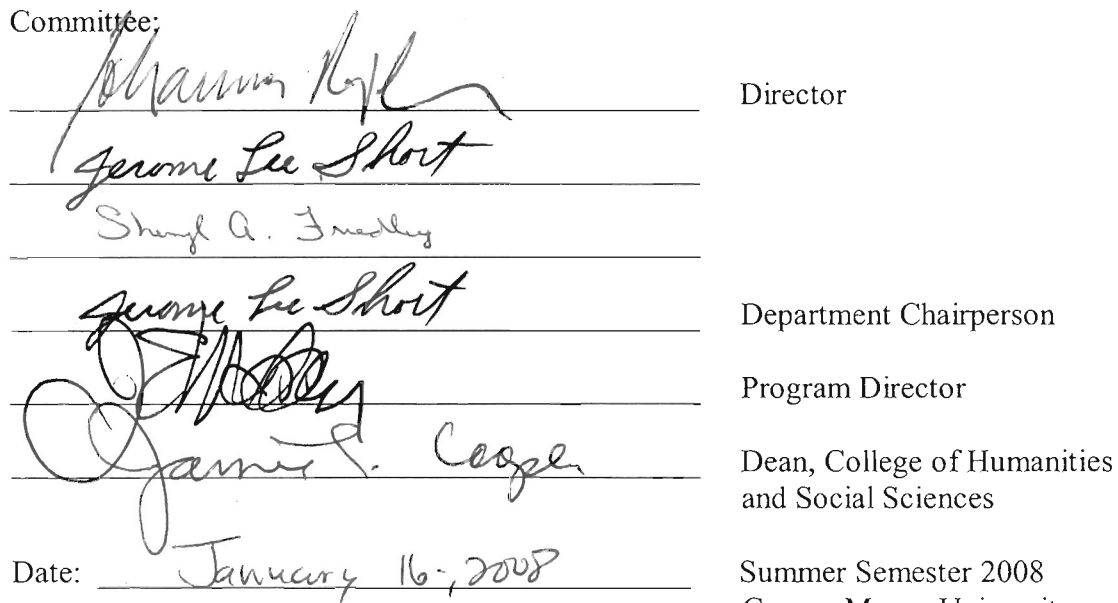 Committee:
Director
Jerome Lee Short
Sheryl A. Friedley
Jerome Lee Short Department Chairperson
Program Director
Cooper Dean, College of Humanities
and Social Sciences
Date: January 16, 2008 Summer Semester 2008